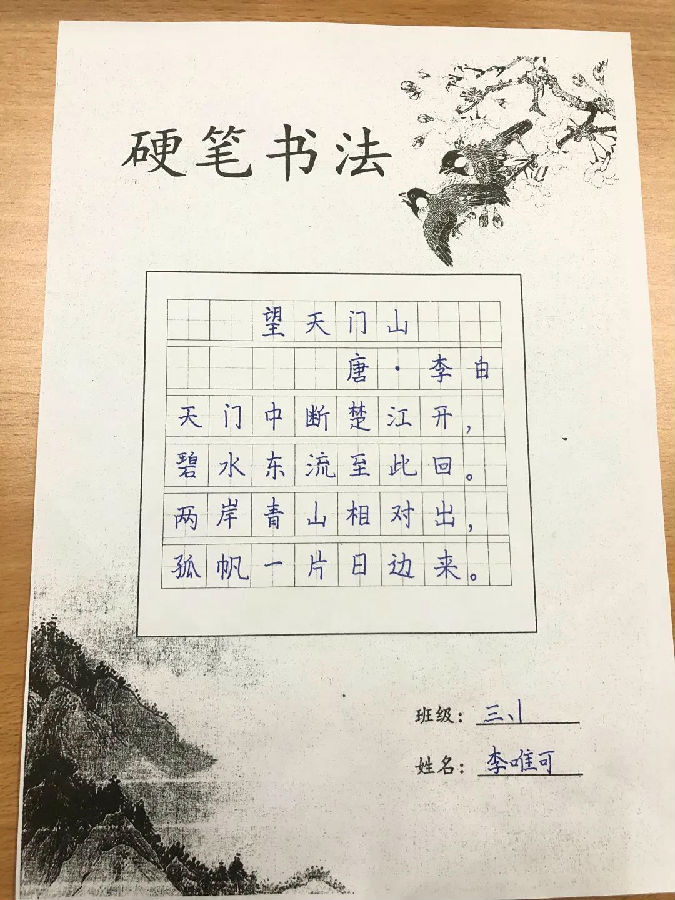 硬笔书法
望天门山
唐·李白
天门中断楚江开，
碧水东流至此回。
两岸青山相对出，
孤帆一片日边来。
班级：三、1
姓名：李唯可